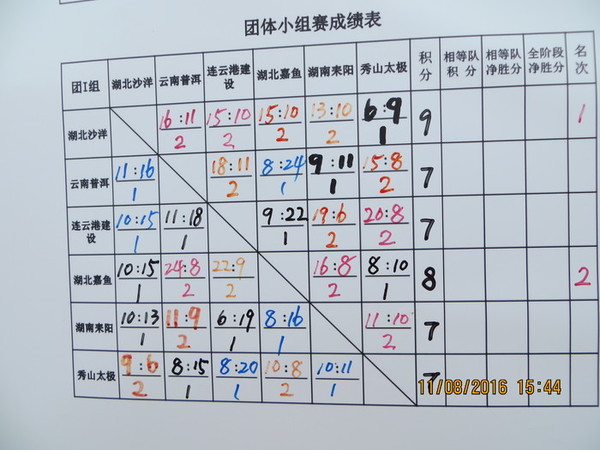 团体小组赛成绩表
团I组 湖北沙洋 云南普洱 连云港建设 湖北嘉鱼 湖南来阳 秀山太极 积分 相等队积分 相等队净胜分 全阶段净胜分 名次
湖北沙洋 16:11 15:10 15:10 13:10 6:9 9 1
2 2 2 2 1
云南普洱 11:16 18:11 8:24 9:11 15:8 7
1 2 1 1 2
连云港建设 10:15 11:18 9:22 19:6 20:8 7
1 1 1 2 2
湖北嘉鱼 10:15 24:8 22:9 16:8 8:10 8 2
1 2 2 2 1
湖南来阳 10:13 11:9 6:19 8:16 11:10 7
1 2 1 1 2
秀山太极 9:6 8:15 8:20 10:8 10:11 7
2 1 1 2 1
11/08/2016 15:44